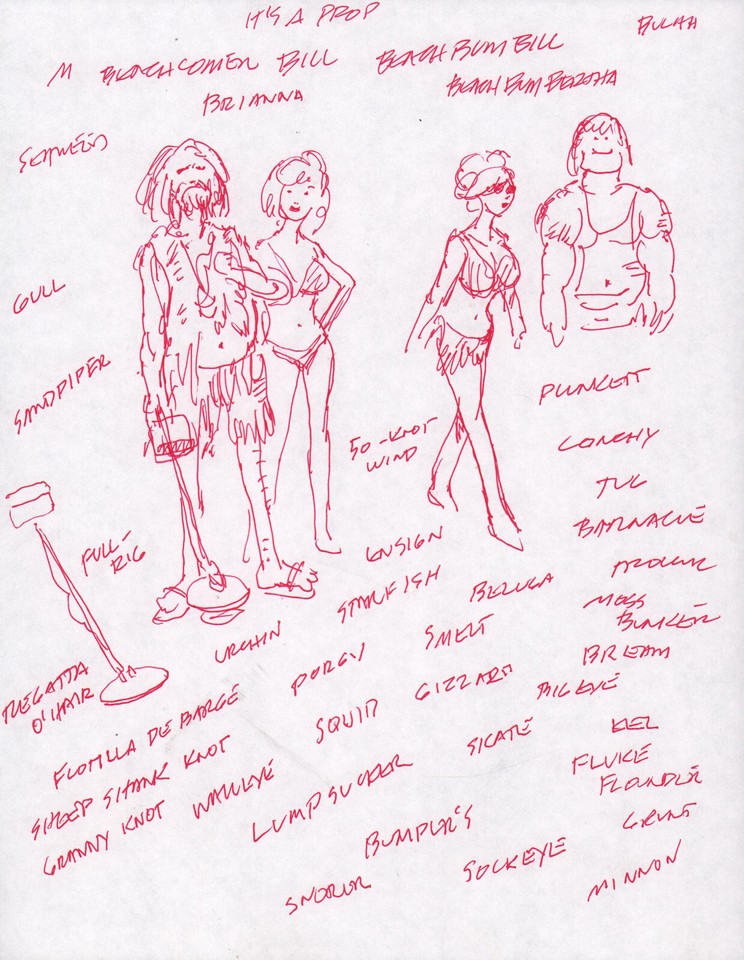 IT'S A PROP
BULAH
M BEACHCOMER BILL
BEACH BUM BILL
BRIANNA
BEACH BUM BERTHA
SEAWEED
GULL
SANDPIPER
PLUNKETT
50-KNOT
WIND
CONCHY
TUG
FULL-
RIG
ENSIGN
BARNACLE
STARFISH
BELUGA
MOSS
BUNKER
URCHIN
PORGY
SMELT
BREAM
REGATTA
O'HAIR
FLOTILLA DE BARGE
SQUID
GIZZARD
BIGEYE
SHEEP SHANK KNOT
WALLEYE
SKATE
EEL
GRANNY KNOT
LUMPSUCKER
FLUKE
FLOUNDER
BUMPER'S
GRUNT
SNORER
SOCKEYE
MINNON